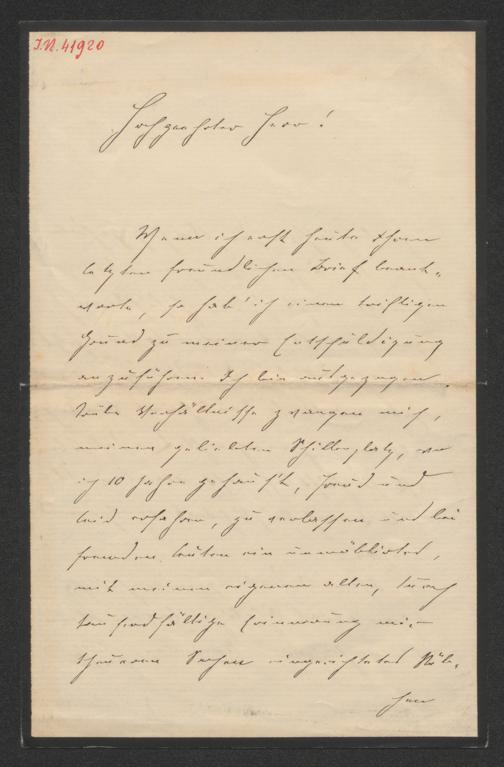 I.N. 41920
Hochgeehrter Herr!
Wenn ich erst heute Ihren
letzten freundlichen Brief beant-
worte, so hab' ich einen triftigen
Grund zu meiner Entschuldigung
anzuführen. Ich bin ausgezogen.
Verhältnisse zwangen mich,
meinen geliebten Schillerplatz, wo
ich 10 Jahre gehaust, Freud und
Leid erfahren, zu verlassen und bei
fremden Leuten ein unmöblirtes,
mit meinen eigenen alten, durch
tausendfältige Erinnerung mir
theueren Sachen eingerichtetes Stüb-